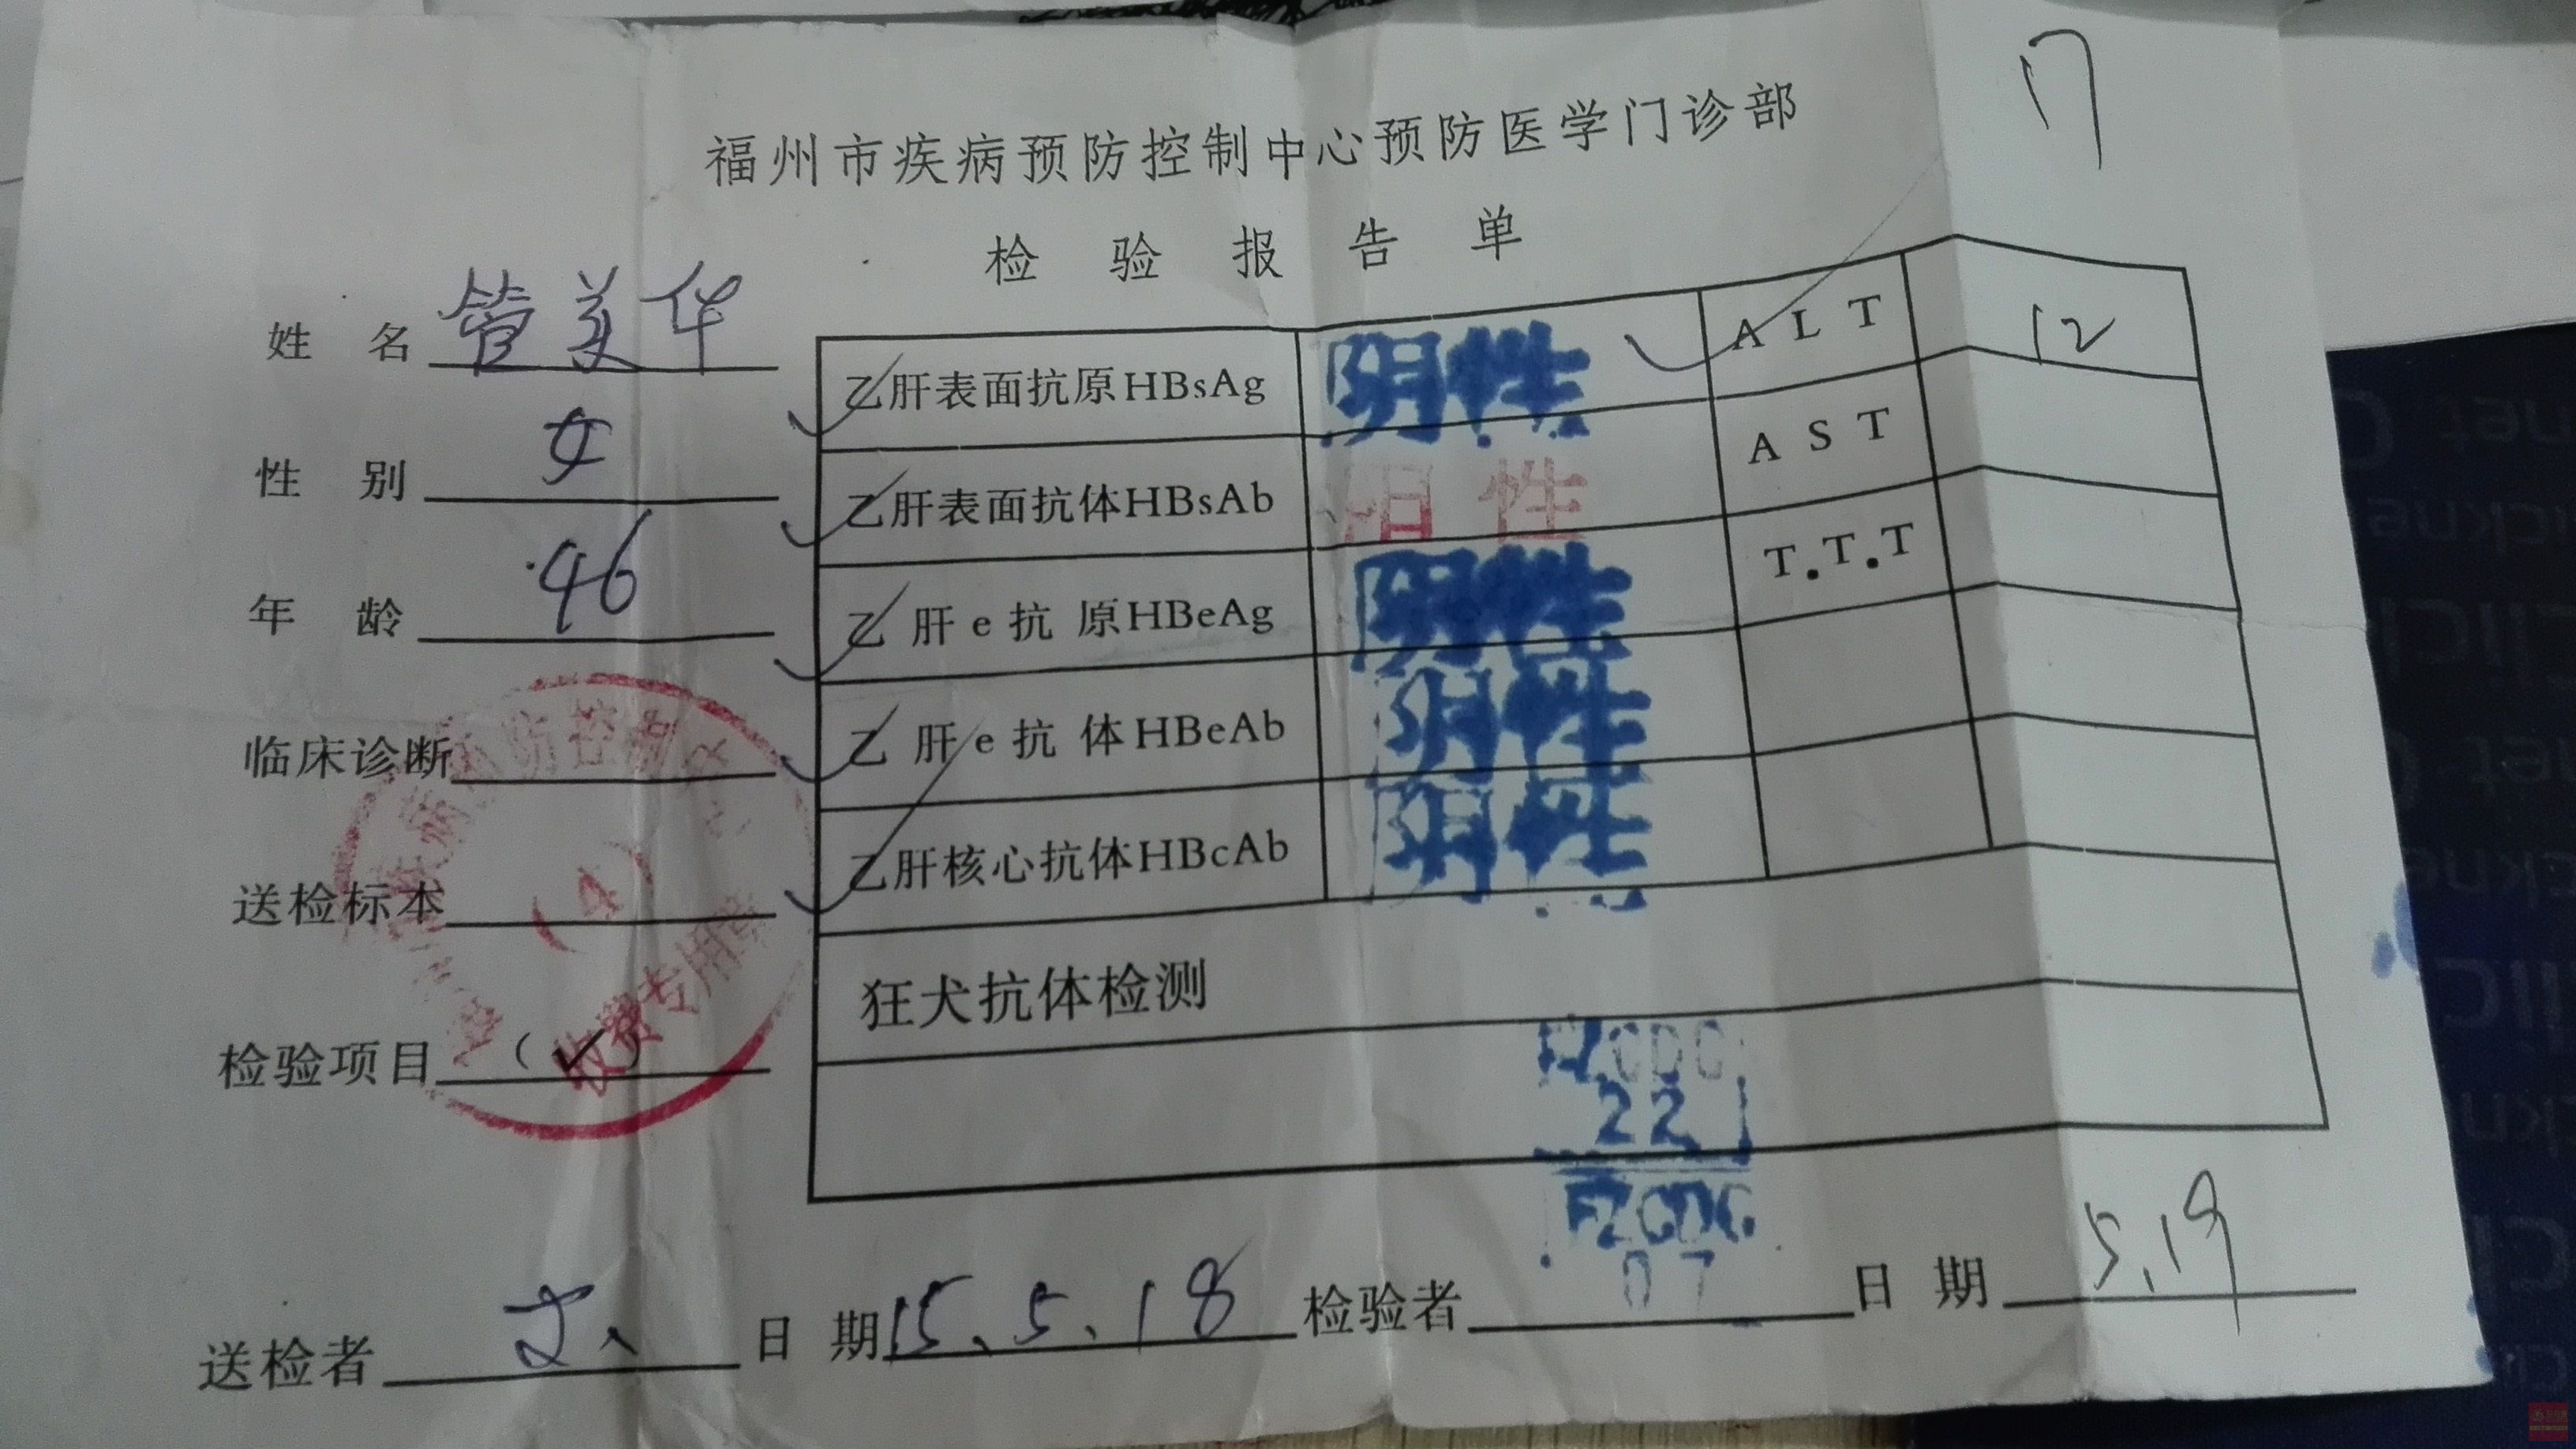 17
福州市疾病预防控制中心预防医学门诊部
检验报告单
姓名 管美华
性别 女
年龄 46
临床诊断
送检标本
检验项目 (✓)
乙肝表面抗原HBsAg 阴性 ALT 12
乙肝表面抗体HBsAb 阳性 AST
乙肝e抗原HBeAg 阴性 T.T.T
乙肝e抗体HBeAb 阴性
乙肝核心抗体HBcAb 阴性
狂犬抗体检测
FZCDC
22
FZCDC
07
送检者 日期 15.5.18 检验者 日期 5.19
防控制
(4)
收费专用章